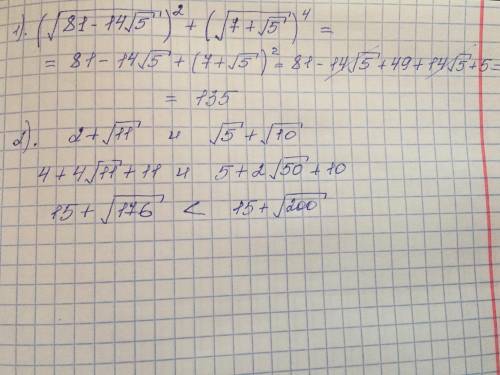 1). (√(81-14√5))² + (√(7+√5))⁴ =
= 81-14√5 + (7+√5)² = 81-14√5+49+14√5+5=
= 135
2). 2+√11 и √5+√10
4+4√11+11 и 5+2√50+10
15+√176 < 15+√200